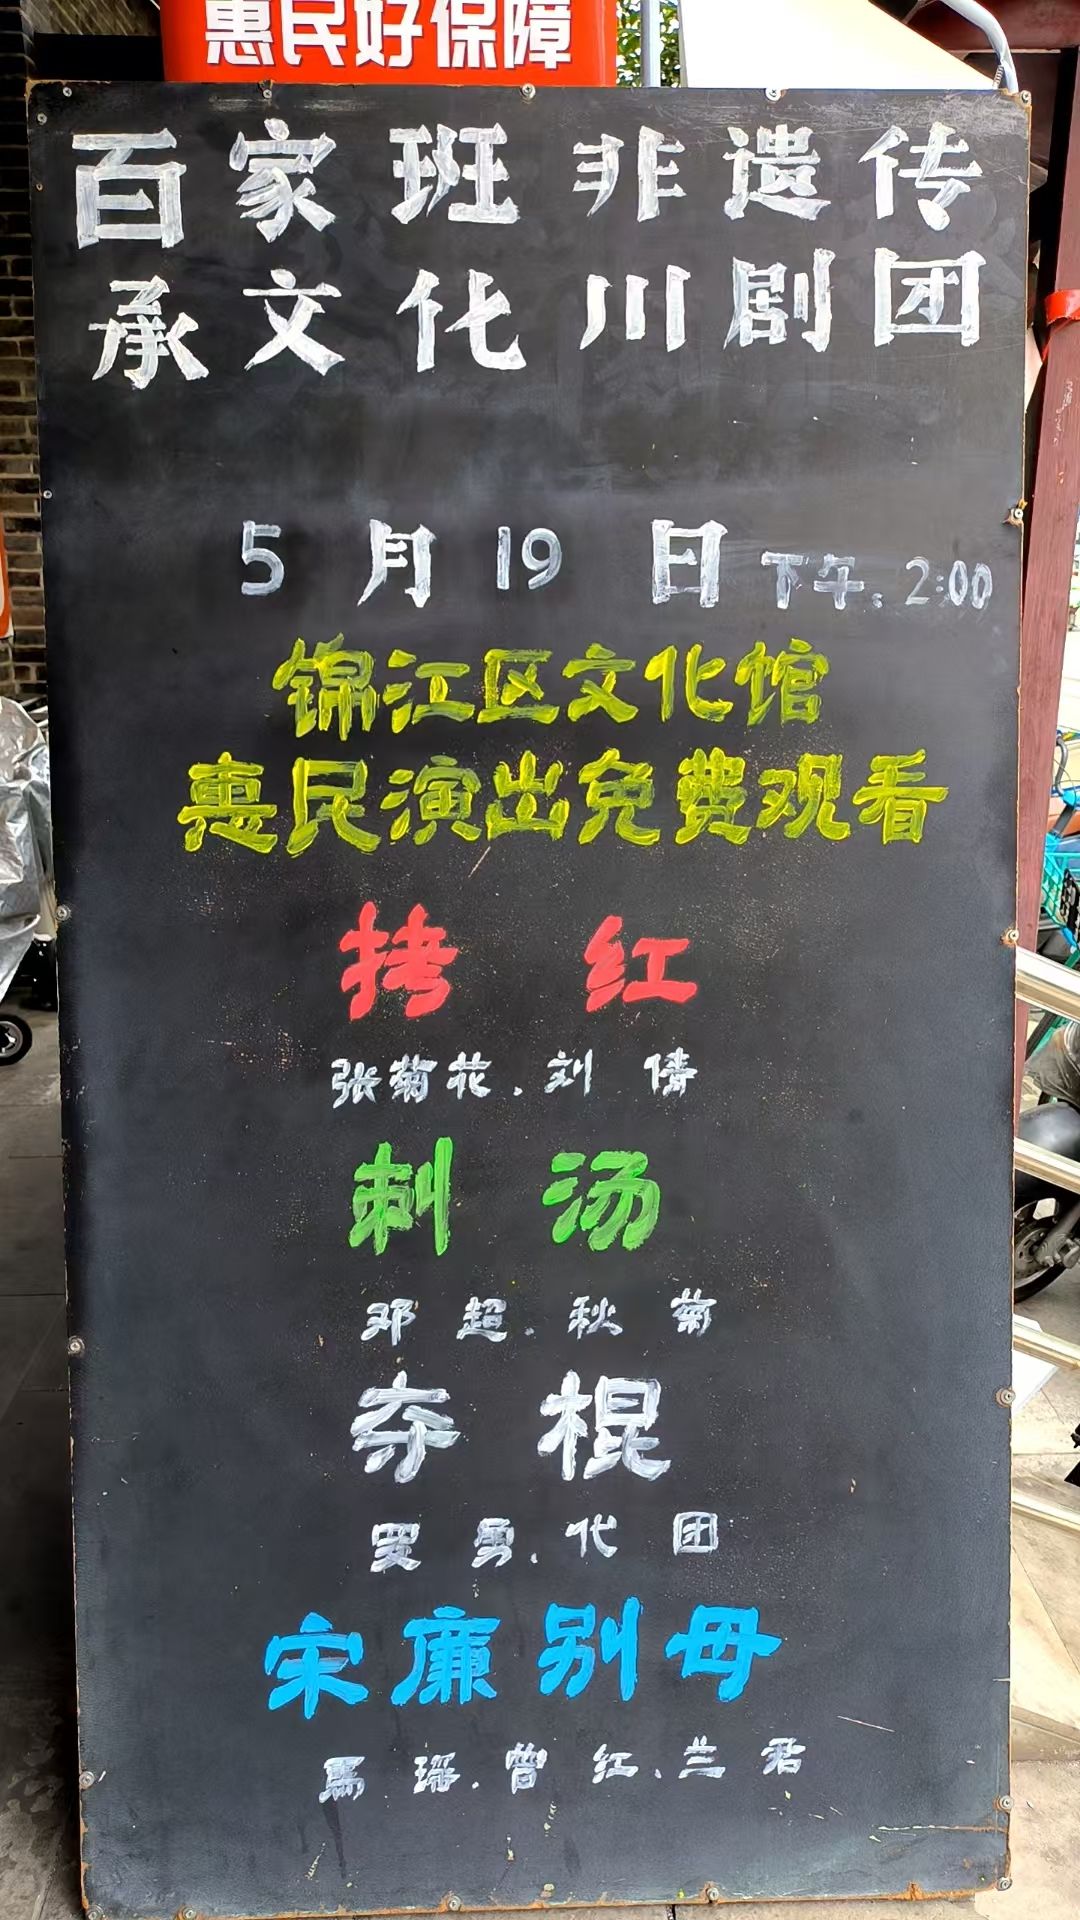 惠民好保障
百家班非遗传
承文化川剧团
5月19日下午:2:00
锦江区文化馆
惠民演出免费观看
拷红
张菊花.刘倩
刺汤
邓超.秋菊
夺棍
罗勇.代团
宋廉别母
馬瑶.曾红、兰君